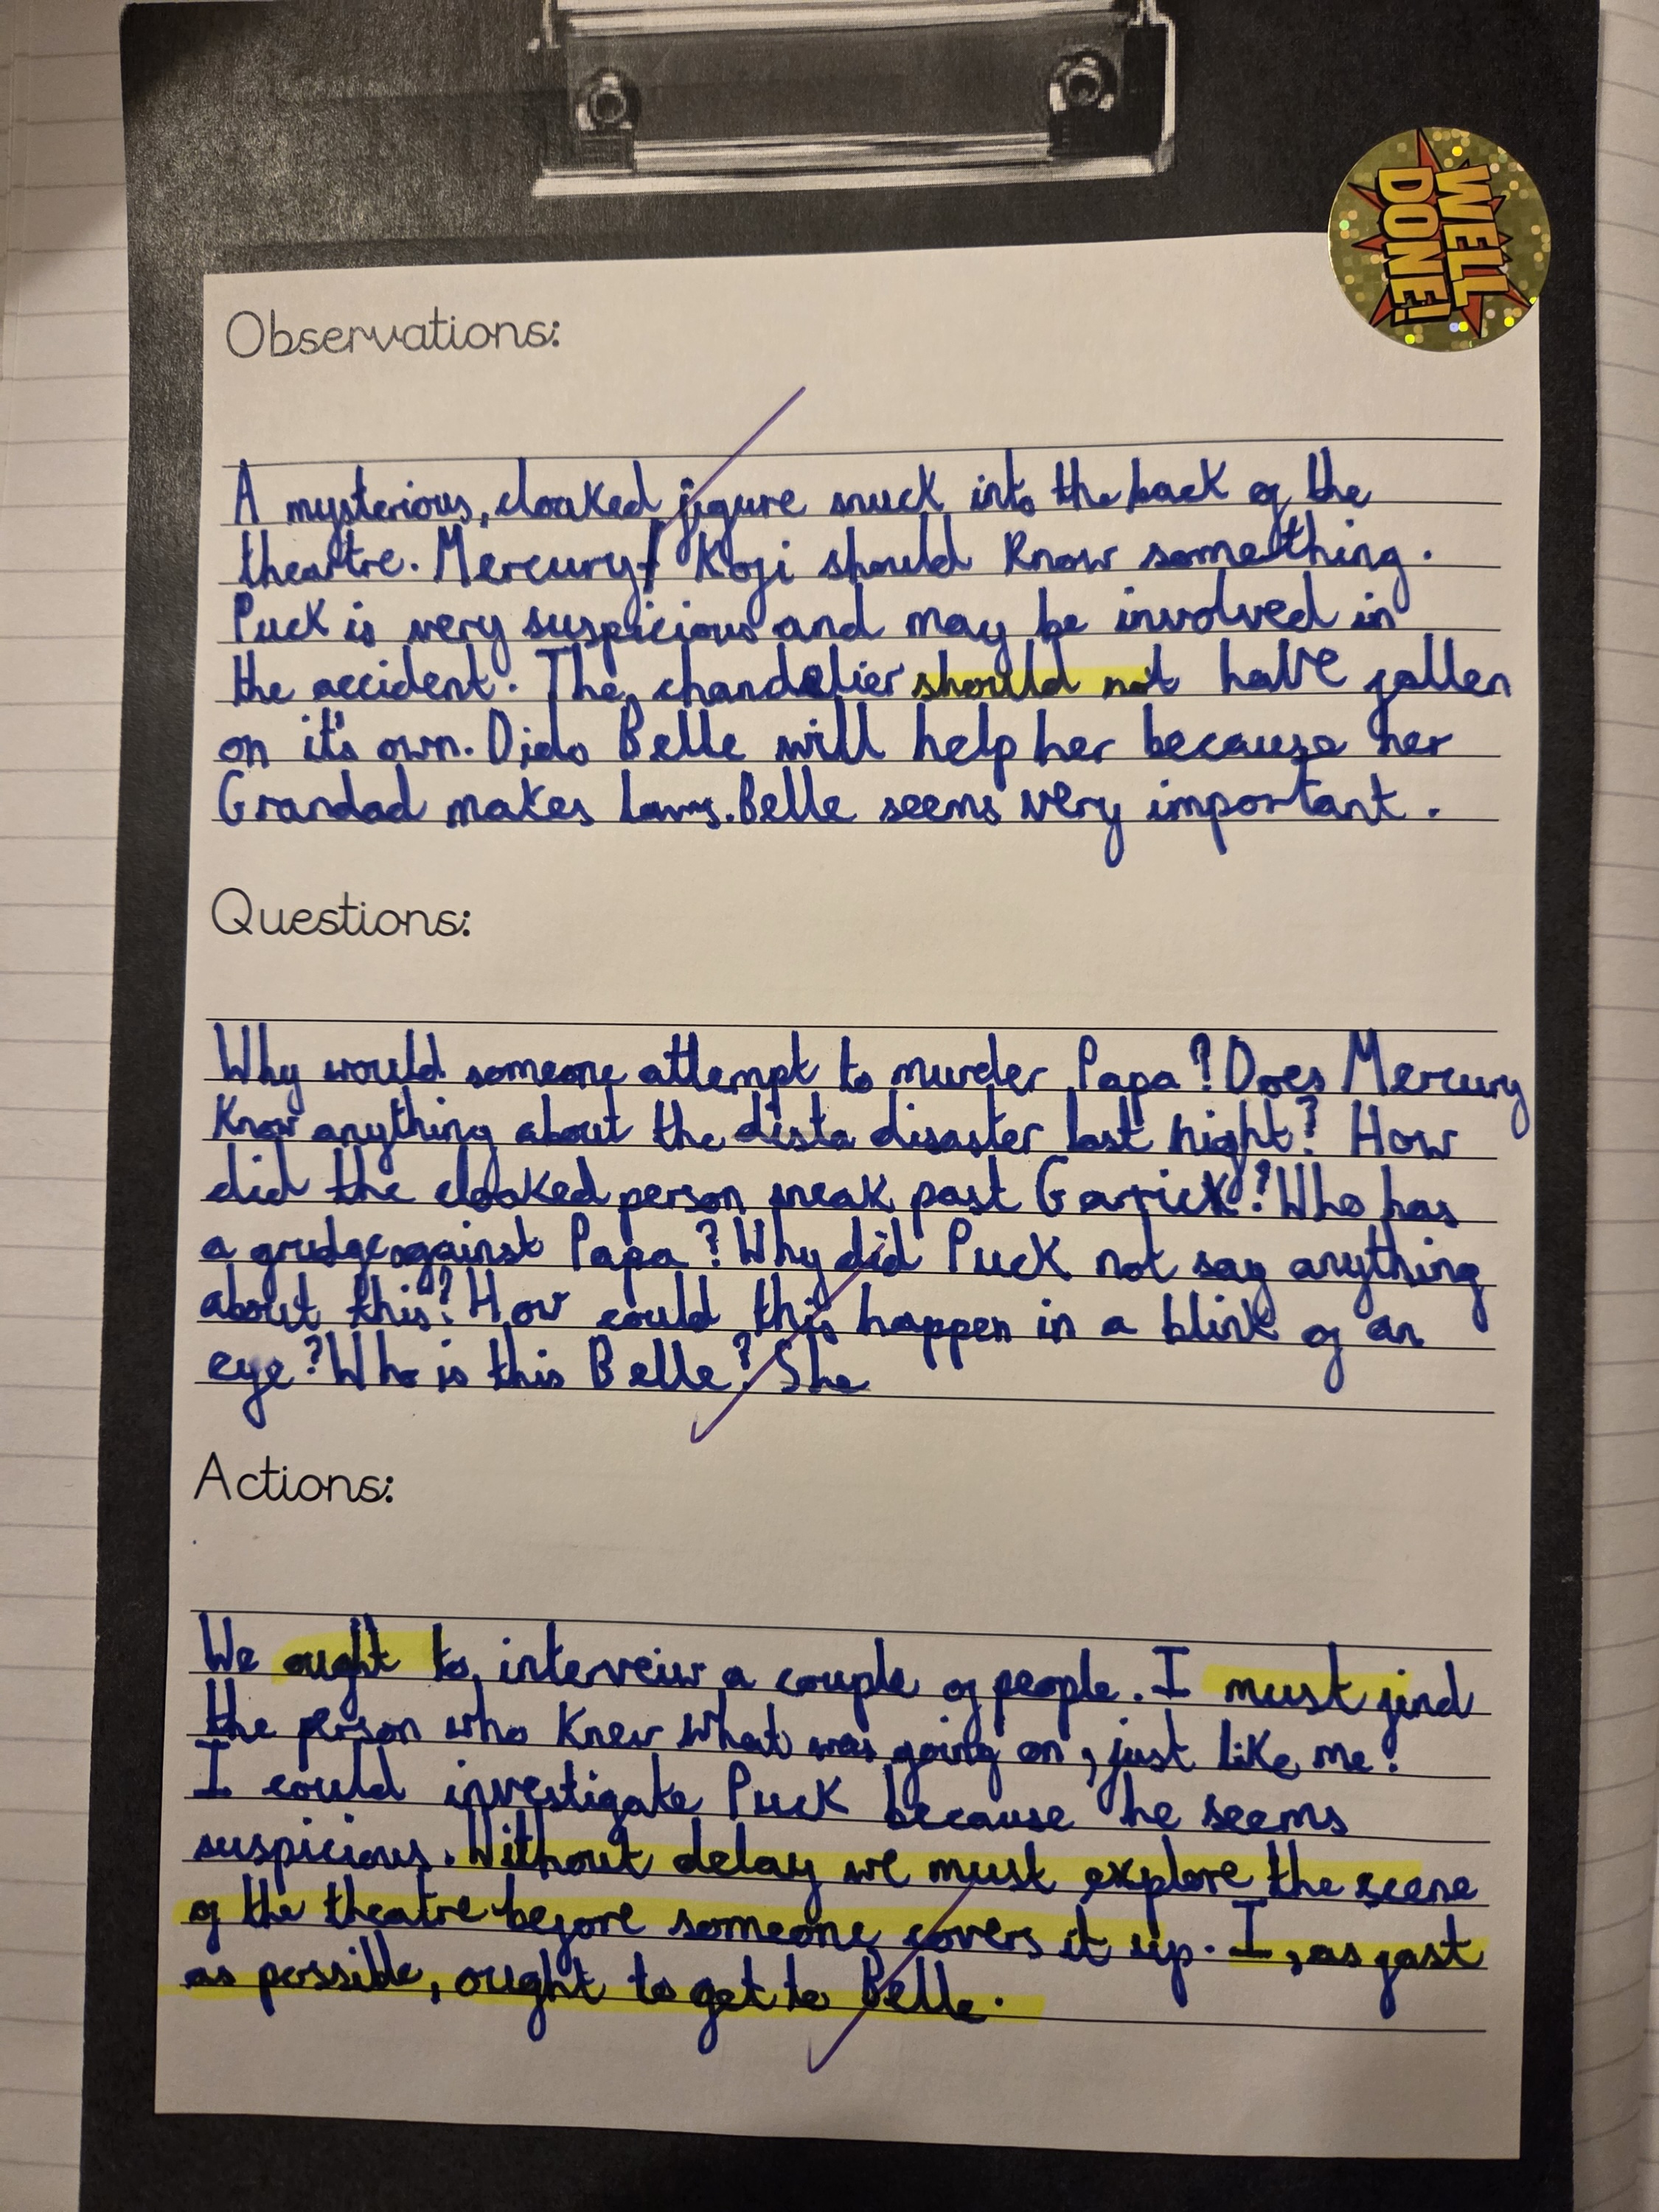 WELL
DONE!
Observations:
A mysterious, cloaked figure snuck into the back of the
theartre. Mercury/ Koji should know something.
Puck is very suspicious and may be involved in
the accident. The chandelier should not have fallen
on it's own. Dido Belle will help her because her
Grandad makes laws. Belle seems very important.
Questions:
Why would someone attempt to murder Papa? Does Mercury
know anything about the dista disaster last night? How
did the cloaked person sneak past Garrick? Who has
a grudge against Papa? Why did Puck not say anything
about this? How could this happen in a blink of an
eye? Who is this Belle? She
Actions:
We ought to interveiw a couple of people. I must find
the person who knew what was going on, just like me!
I could investigate Puck because he seems
suspicious. Without delay we must explore the scene
of the theatre before someone covers it up. I, as fast
as possible, ought to get to Belle.